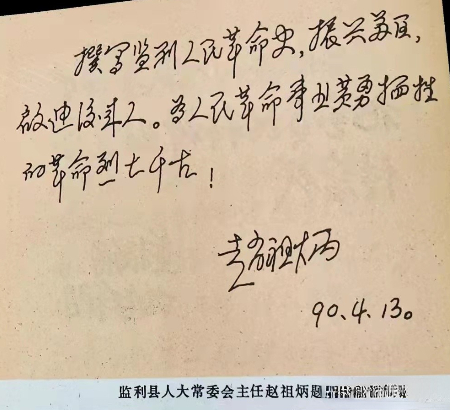 撰写监利人民革命史，振兴苏区，
启迪后来人。为人民革命事业英勇牺牲
的革命烈士千古！
赵祖炳
90.4.13。
监利县人大常委会主任赵祖炳题